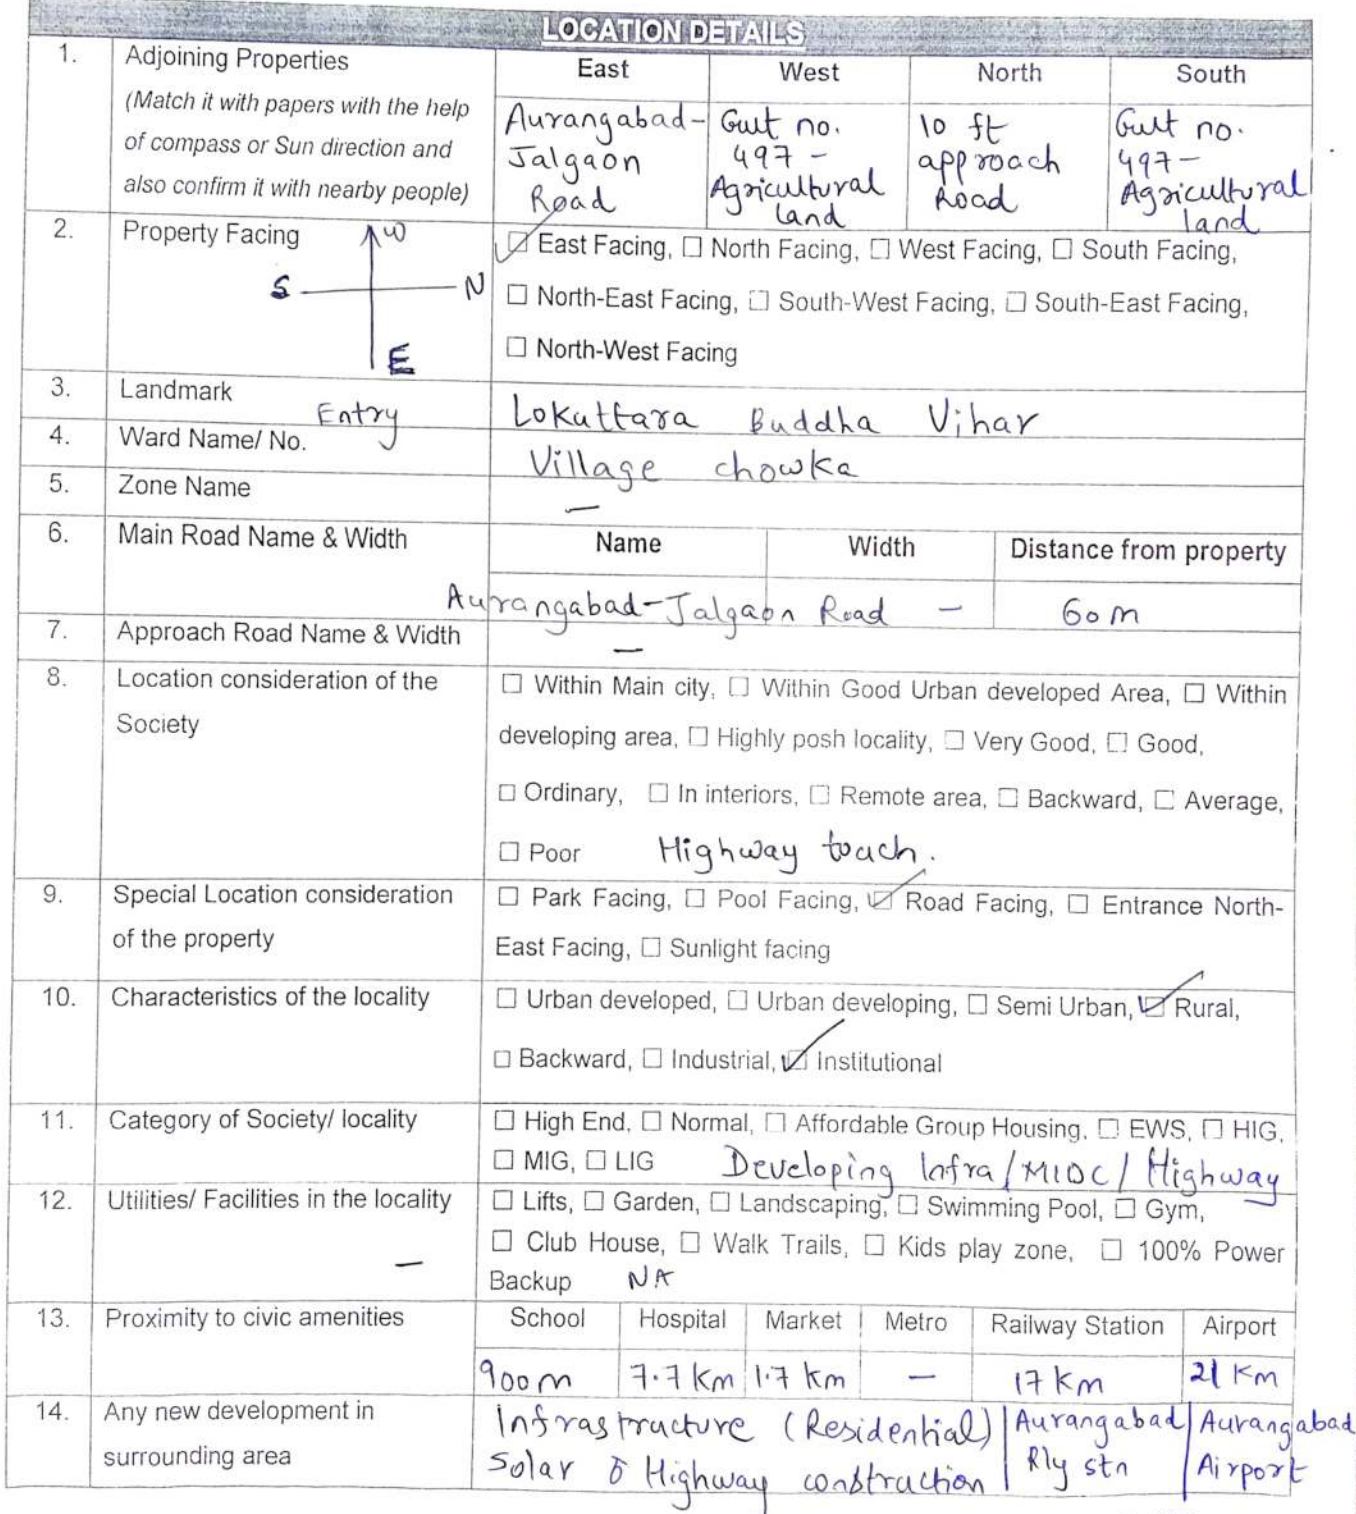 LOCATION DETAILS
1. Adjoining Properties
(Match it with papers with the help
of compass or Sun direction and
also confirm it with nearby people)
East West North South
Aurangabad-
Jalgaon
Road
Gut no.
497 -
Agricultural
land
10 ft
approach
Road
Gut no.
497-
Agricultural
land
2. Property Facing
W
S N
E
☑ East Facing, ☐ North Facing, ☐ West Facing, ☐ South Facing,
☐ North-East Facing, ☐ South-West Facing, ☐ South-East Facing,
☐ North-West Facing
3. Landmark Entry Lokuttara Buddha Vihar
4. Ward Name/ No. Village chowka
5. Zone Name —
6. Main Road Name & Width Name Width Distance from property
Aurangabad-Jalgaon Road — 60 m
7. Approach Road Name & Width —
8. Location consideration of the
Society
☐ Within Main city, ☐ Within Good Urban developed Area, ☐ Within
developing area, ☐ Highly posh locality, ☐ Very Good, ☐ Good,
☐ Ordinary, ☐ In interiors, ☐ Remote area, ☐ Backward, ☐ Average,
☐ Poor Highway touch.
9. Special Location consideration
of the property
☐ Park Facing, ☐ Pool Facing, ☑ Road Facing, ☐ Entrance North-
East Facing, ☐ Sunlight facing
10. Characteristics of the locality
☐ Urban developed, ☐ Urban developing, ☐ Semi Urban, ☑ Rural,
☐ Backward, ☐ Industrial, ☑ Institutional
11. Category of Society/ locality
☐ High End, ☐ Normal, ☐ Affordable Group Housing, ☐ EWS, ☐ HIG,
☐ MIG, ☐ LIG Developing Infra/MIDC/Highway
12. Utilities/ Facilities in the locality —
☐ Lifts, ☐ Garden, ☐ Landscaping, ☐ Swimming Pool, ☐ Gym,
☐ Club House, ☐ Walk Trails, ☐ Kids play zone, ☐ 100% Power
Backup NA
13. Proximity to civic amenities
School Hospital Market Metro Railway Station Airport
900 m 7.7 Km 1.7 Km — 17 Km 21 Km
14. Any new development in
surrounding area
Infrastructure (Residential)
Solar & Highway construction
Aurangabad
Rly stn
Aurangabad
Airport